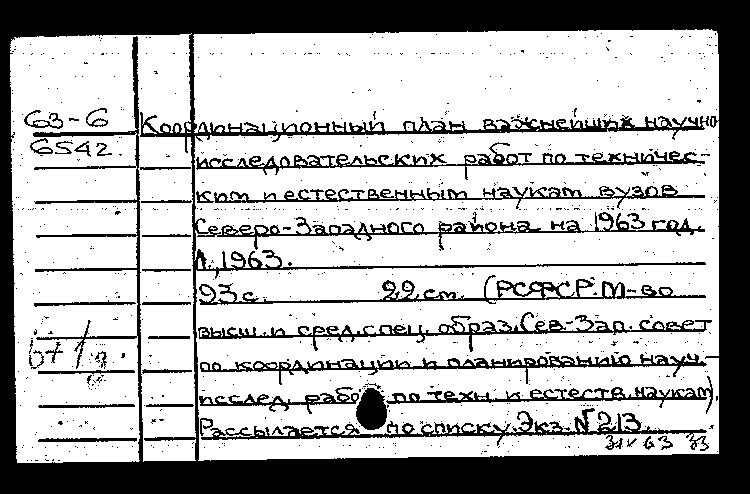 63-6 Координационный план важнейших научно-
6542 исследовательских работ по техничес-
ким и естественным наукам вузов
Северо-Западного района на 1963 год.
Л., 1963.
93 с. 22 см. (РСФСР. М-во
высш. и сред. спец. образ. Сев-Зап. совет
по координации и планированию науч.-
исслед. работ по техн. и естеств. наукам).
Рассылается по списку. Экз. № 213.